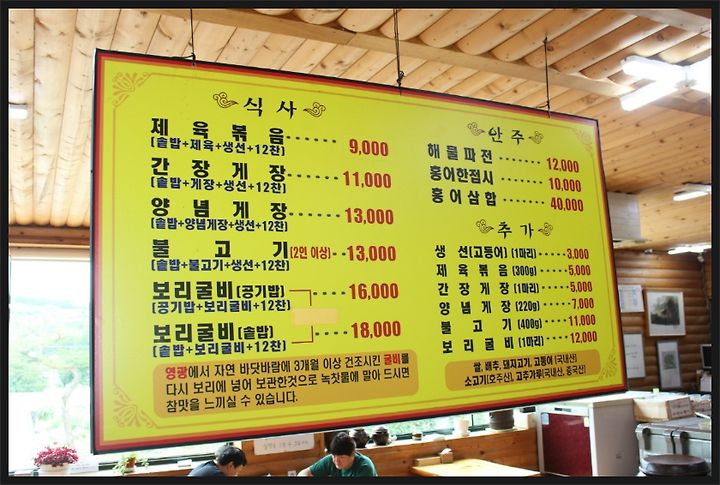 식사
제육볶음 ...... 9,000
(솥밥+제육+생선+12찬)
간장게장 ...... 11,000
(솥밥+게장+생선+12찬)
양념게장 ...... 13,000
(솥밥+양념게장+생선+12찬)
불고기(2인 이상) .. 13,000
(솥밥+불고기+생선+12찬)
보리굴비(공기밥) 16,000
(공기밥+보리굴비+12찬)
보리굴비(솥밥) 18,000
(솥밥+보리굴비+12찬)
영광에서 자연 바닷바람에 3개월 이상 건조시킨 굴비를
다시 보리에 넣어 보관한것으로 녹찻물에 말아 드시면
참맛을 느끼실 수 있습니다.
안주
해물파전 ....... 12,000
홍어한접시 ...... 10,000
홍어삼합 ....... 40,000
추가
생선(고등어)(1마리) .... 3,000
제육볶음(300g) ..... 5,000
간장게장(1마리) ..... 5,000
양념게장(220g) ..... 7,000
불고기(400g) ..... 11,000
보리굴비(1마리) ..... 12,000
쌀, 배추, 돼지고기, 고등어(국내산)
소고기(호주산), 고추가루(국내산, 중국산)